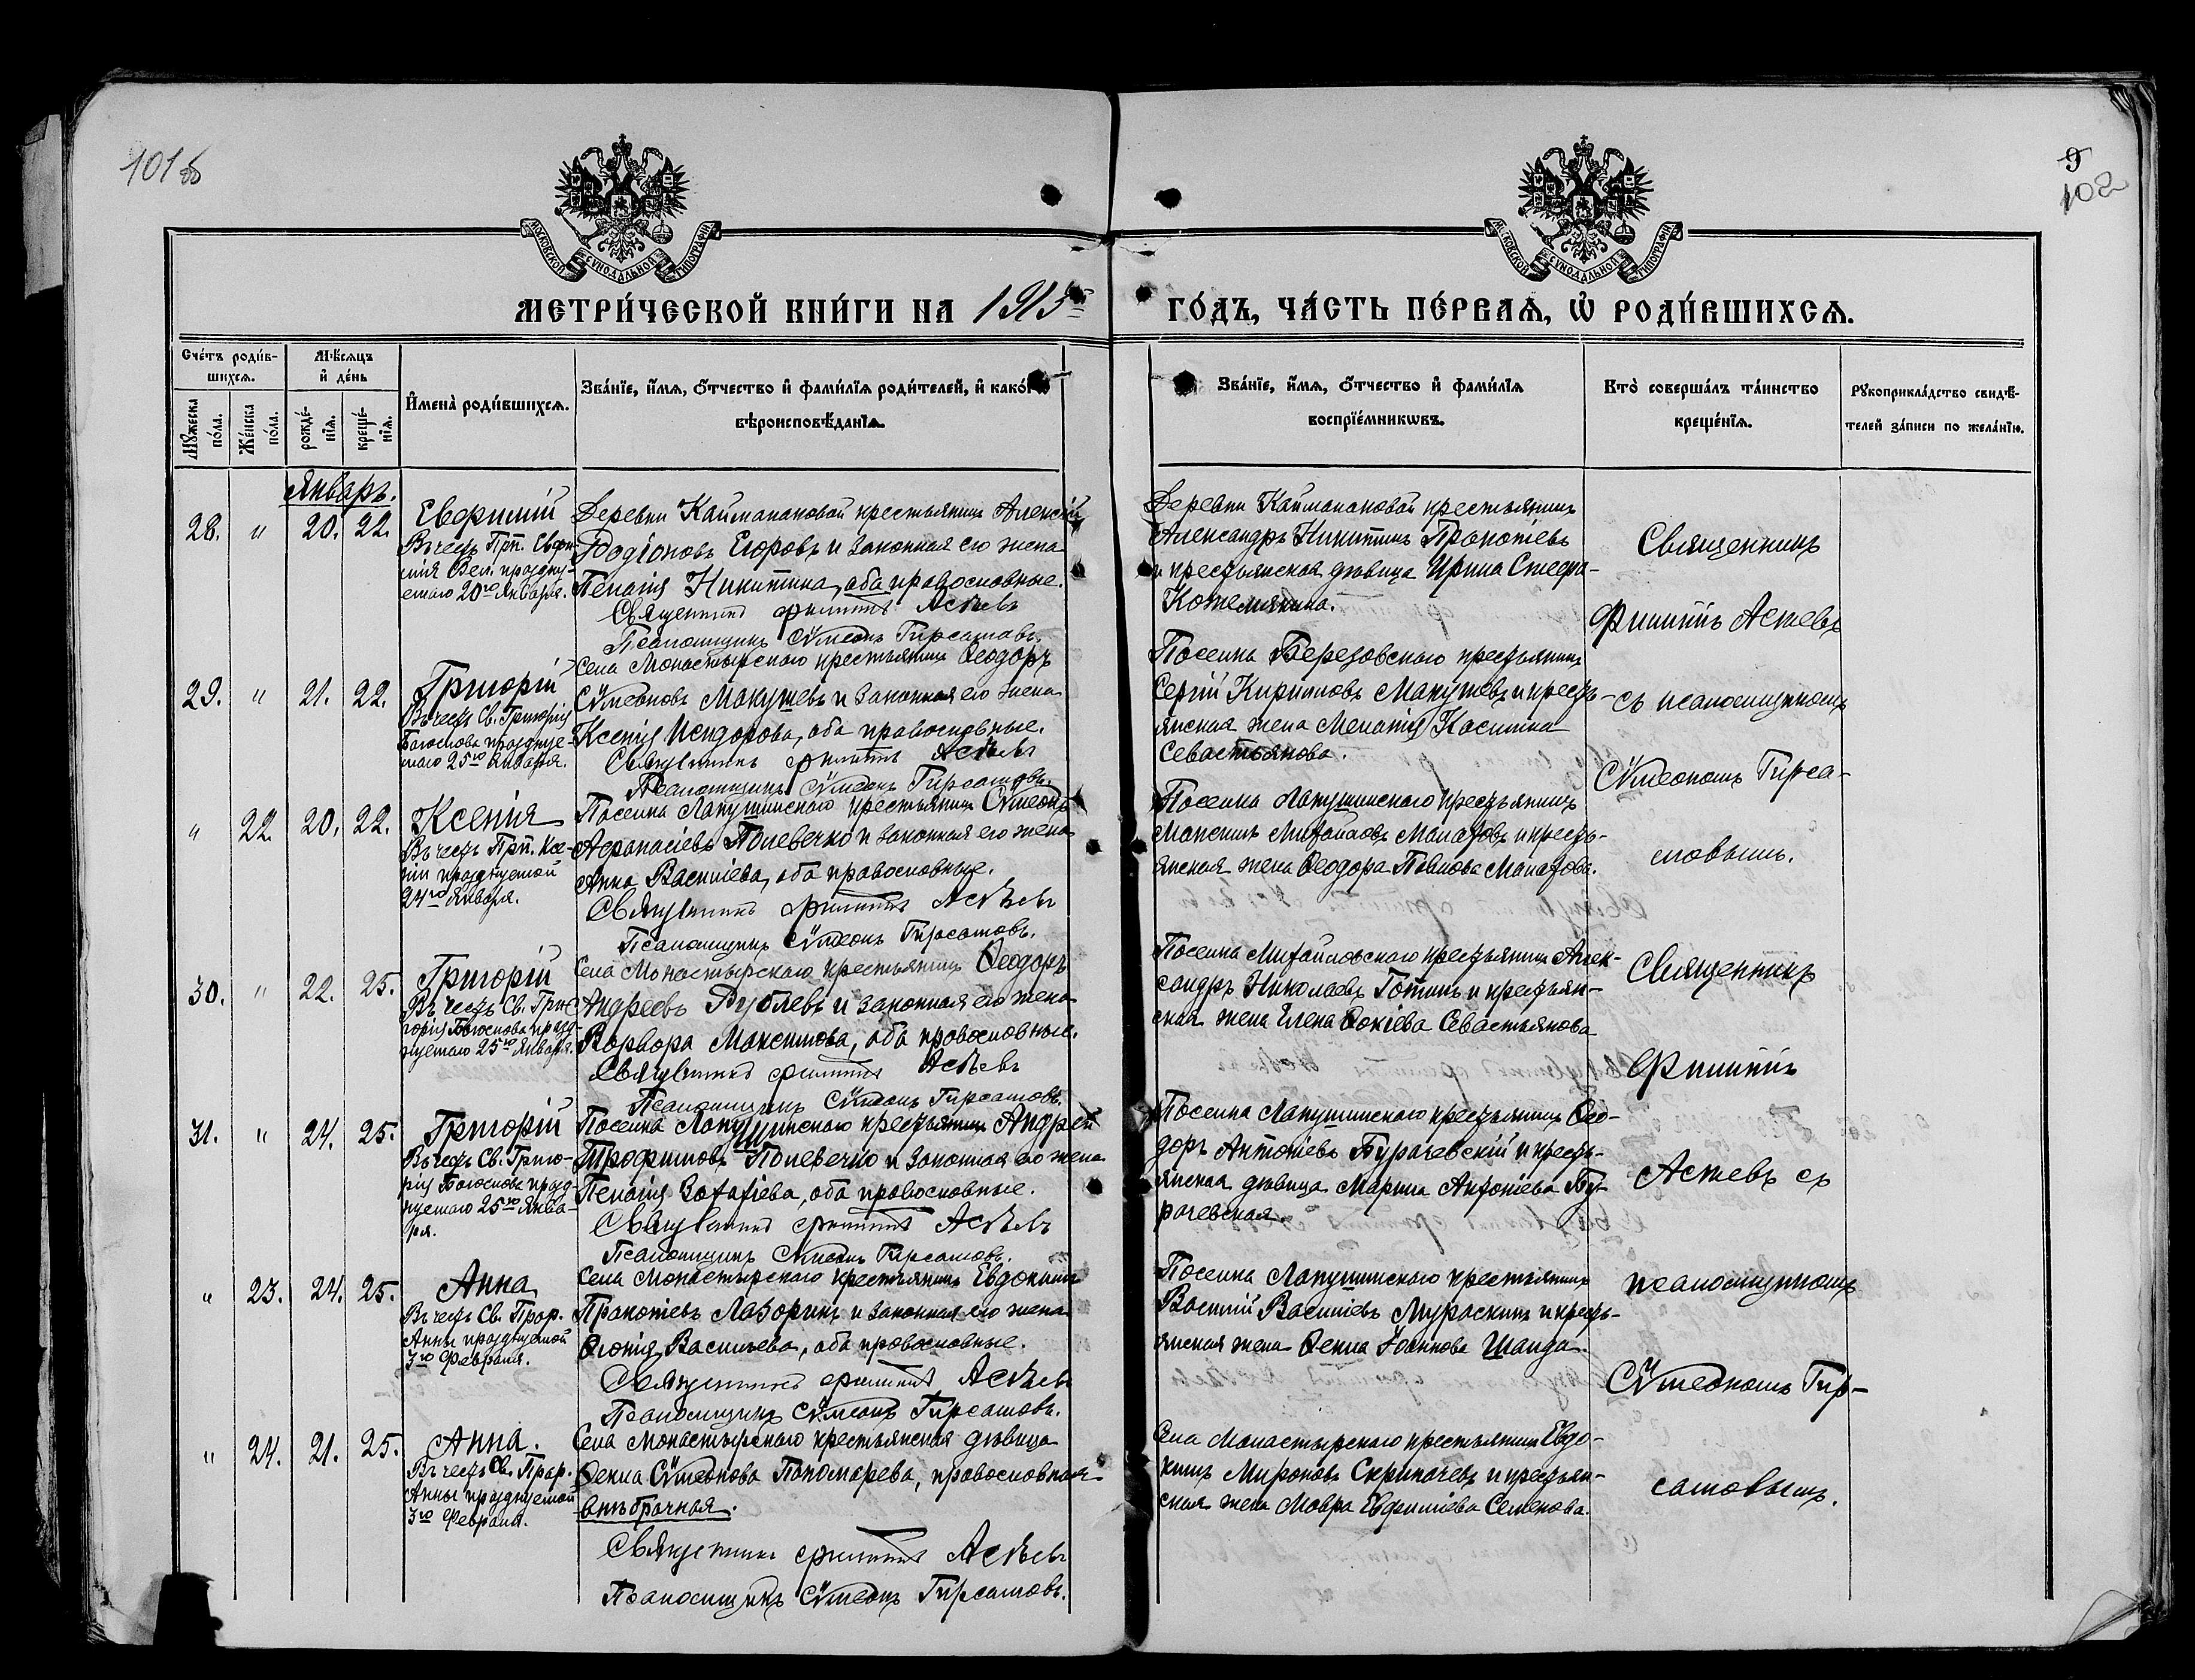 101 об
9
102
МОСКОВСКОЙ СѴНОДАЛЬНОЙ ТИПОГРАФІИ
МОСКОВСКОЙ СѴНОДАЛЬНОЙ ТИПОГРАФІИ
МЕТРИ́ЧЕСКОЙ КНИ́ГИ НА 1915й
ГО́ДЪ, ЧА́СТЬ ПЕ́РВАѦ, Ѿ РОДИ́ВШИХСѦ.
Сче́тъ роди́в-
шихсѧ.
Мꙋ́жеска по́ла.
Же́нска по́ла.
Мѣ́сѧцъ
и҆ де́нь
рожде́-
нїѧ.
креще́-
нїѧ.
И҆мена̀ роди́вшихсѧ.
Зва́нїе, и҆́мѧ, ѻ҆́тчество и҆ фами́лїѧ роди́телей, и҆ како́гѡ
вѣроисповѣ́данїѧ.
Зва́нїе, и҆́мѧ, ѻ҆́тчество и҆ фами́лїѧ
воспрїе́мникѡвъ.
Кто̀ соверша́лъ та́инство
креще́нїѧ.
Рꙋкоприкла́дство свидѣ́-
телей за́писи по жела́нїю.
Январь.
28. " 20. 22.
Евфимій
Въ честь Прп. Евфи-
мія Вел. праздну-
емаго 20го Января.
Деревни Кайманаковой крестьянинъ Алексій
Родіоновъ Егоровъ и законная его жена
Пелагія Никитина, оба православные.
Священникъ Филиппъ Асѣевъ
Псаломщикъ Сѵмеонъ Гирсамовъ.
Деревни Кайманаковой крестьянинъ
Александръ Никитинъ Прокопіевъ
и крестьянская дѣвица Ирина Стефа-
Кожемякина.
29. " 21. 22.
Григорій
Въ честь Св. Григорія
Богослова праздъуе-
маго 25го Января.
Села Монастырскаго крестьянинъ Ѳеодоръ
Сѵмеоновъ Макушевъ и законная его жена
Ксенія Исидорова, оба православные.
Священникъ Филиппъ Асѣевъ
Псаломщикъ Сѵмеонъ Гирсамовъ.
Поселка Березовскаго крестьянинъ
Сергій Кирилловъ Макушевъ и кресть-
янская жена Меланія Касьмина
Севастьянова.
" 22. 20. 22.
Ксенія
Въ честь Прп. Ксе-
ніи празднуемой
24го Января.
Поселка Лапушинскаго крестьянинъ Сѵмеонъ
Афанасіевъ Полевечко и законная его жена
Анна Василіева, оба православные.
Священникъ Филиппъ Асѣевъ
Псаломщикъ Сѵмеонъ Гирсамовъ.
Поселка Лапушинскаго крестьянинъ
Максимъ Михайловъ Малаховъ и кресть-
янская жена Ѳеодора Павлова Малахова.
30. " 22. 25.
Григорій
Въ честь Св. Гри-
горія Богослова празд-
нуемаго 25го Января.
Села Монастырскаго крестьянинъ Ѳеодоръ
Андреевъ Рублевъ и законная его жена
Варвара Максимова, оба православные.
Священникъ Филиппъ Асѣевъ
Псаломщикъ Сѵмеонъ Гирсамовъ.
Поселка Михайловскаго крестьянинъ Алек-
сандръ Николаевъ Готинъ и крестьян-
ская жена Елена Ѳокіева Севастьянова
31. " 24. 25.
Григорій
Въ честь Св. Григо-
рія Богослова празд-
нуемаго 25го Янва-
ря.
Поселка Лапушинскаго крестьянинъ Андрей
Трофимовъ Полевечко и законная его жена
Пелагія Захаріева, оба православные.
Священникъ Филиппъ Асѣевъ
Псаломщикъ Сѵмеонъ Гирсамовъ.
Поселка Лапушинскаго крестьянинъ Ѳео-
доръ Антоніевъ Бурачевскій и кресть-
янская дѣвица Марина Антоніева Бу-
рачевская.
" 23. 24. 25.
Анна
Въ честь Св. Прор.
Анны празднуемой
3го Февраля.
Села Монастырскаго крестьянинъ Евдокимъ
Прокопіевъ Лазоринъ и законная его жена
Ѳіонія Васильева, оба православные.
Священникъ Филиппъ Асѣевъ
Псаломщикъ Сѵмеонъ Гирсамовъ.
Поселка Лапушинскаго крестьянинъ
Василій Василіевъ Мураскинъ и кресть-
янская жена Ѳекла Іоаннова Шанда.
" 24. 21. 25.
Анна.
Въ честь Св. Прор.
Анны празднуемой
3го Февраля.
Села Монастырскаго крестьянская дѣвица
Ѳекла Сѵмеонова Пономарева, православная
внѣбрачная.
Священникъ Филиппъ Асѣевъ
Псаломщикъ Сѵмеонъ Гирсамовъ.
Села Монастырскаго крестьянинъ Евдо-
кимъ Мироновъ Скрипачевъ и крестьян-
ская жена Мавра Евфиміева Семенова.
Священникъ
Филиппъ Асѣевъ
съ псаломщикомъ
Сѵмеономъ Гирса-
мовымъ.
Священникъ
Филиппъ
Асѣевъ съ
псаломщикомъ
Сѵмеономъ Гир-
самовымъ.